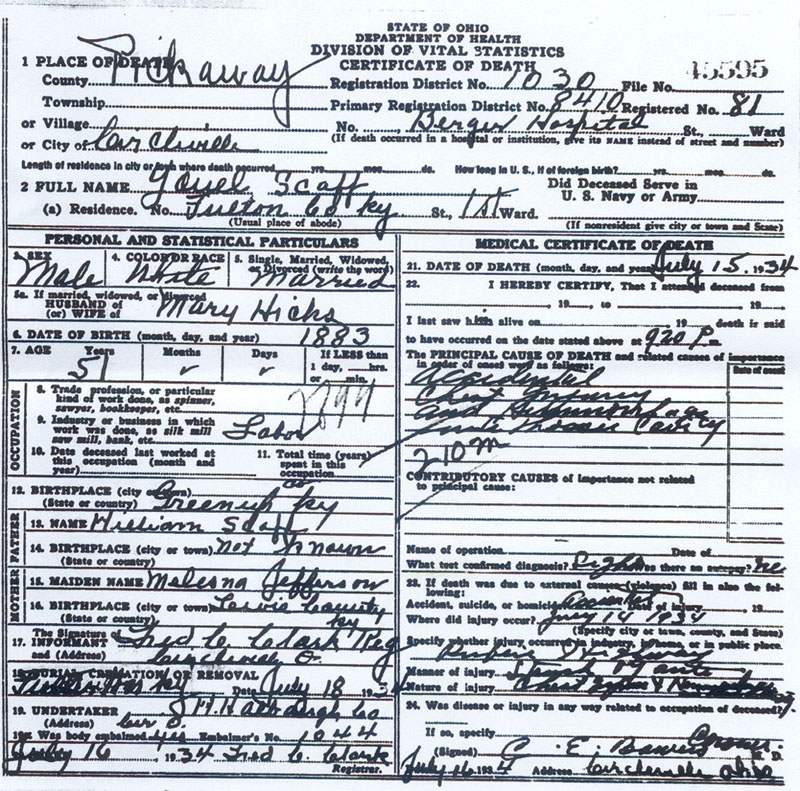 STATE OF OHIO
DEPARTMENT OF HEALTH
DIVISION OF VITAL STATISTICS
CERTIFICATE OF DEATH
1 PLACE OF DEATH
County Pickaway Registration District No. 1030 File No. 45595
Township Primary Registration District No. 8410 Registered No. 81
or Village No. Berger Hospital St., Ward
or City of Circleville (If death occurred in a hospital or institution, give its NAME instead of street and number)
Length of residence in city or town where death occurred yrs. mos. ds. How long in U. S., if of foreign birth? yrs. mos. ds.
2 FULL NAME Scaff Did Deceased Serve in U. S. Navy or Army
(a) Residence. No. Fulton Co Ky St., 1st Ward.
(Usual place of abode) (If nonresident give city or town and State)
PERSONAL AND STATISTICAL PARTICULARS
3. SEX Male 4. COLOR OR RACE White 5. Single, Married, Widowed, or Divorced (write the word) Married
5a. If married, widowed, or divorced
HUSBAND of
(or) WIFE of Mary Hicks
6. DATE OF BIRTH (month, day, and year) 1883
7. AGE Years 51 Months ✓ Days ✓ If LESS than 1 day, hrs. or min.
OCCUPATION
8. Trade, profession, or particular kind of work done, as spinner, sawyer, bookkeeper, etc.
9. Industry or business in which work was done, as silk mill saw mill, bank, etc. Labor
10. Date deceased last worked at this occupation (month and year) 11. Total time (years) spent in this occupation
12. BIRTHPLACE (city or town) Greenup Ky
(State or country)
FATHER
13. NAME William Scaff
14. BIRTHPLACE (city or town) Not Known
(State or country)
MOTHER
15. MAIDEN NAME Jefferson
16. BIRTHPLACE (city or town) Lewis County
(State or country) Ky
17. The Signature INFORMANT Fred C Clark Reg
and (Address) Circleville O
18. BURIAL CREMATION OR REMOVAL
Ky Date July 18 1934
19. UNDERTAKER Co
(Address) Cir O.
Was body embalmed Embalmer's No. 1044
July 16 1934 Fred C. Clark
Registrar.
MEDICAL CERTIFICATE OF DEATH
21. DATE OF DEATH (month, day, and year) July 15, 1934
22. I HEREBY CERTIFY, That I attended deceased from
19 , to 19
I last saw him alive on 19 death is said
to have occurred on the date stated above at 920 P.m
The PRINCIPAL CAUSE OF DEATH and related causes of importance
in order of onset were as follows: Date of onset
Accidental
Chest Injury
and
Cavity
210m
CONTRIBUTORY CAUSES of importance not related
to principal cause:
Name of operation Date of
What test confirmed diagnosis? Was there an autopsy? no
23. If death was due to external causes (violence) fill in also the following:
Accident, suicide, or homicide Date of injury 19
Where did injury occur? July 14 1934
(Specify city or town, county, and State)
Specify whether injury occurred in industry, in home, or in public place.
Manner of injury
Nature of injury Chest
24. Was disease or injury in any way related to occupation of deceased?
If so, specify
(Signed) C. E. Coroner. M. D.
July 16 1934 Address Circleville Ohio